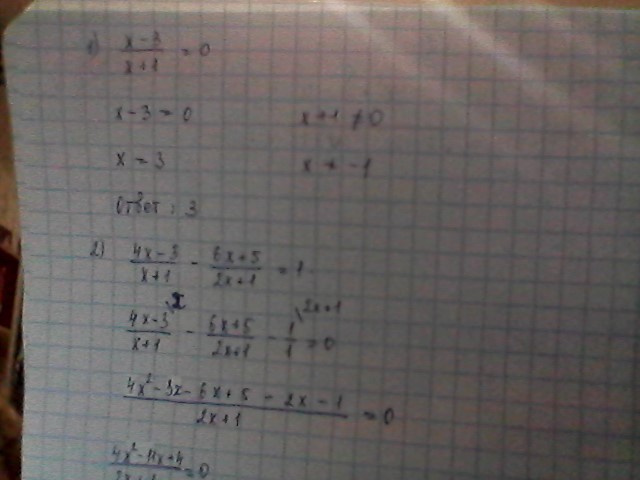 1) (x-3)/(x+1) = 0
x-3=0 x+1≠0
x=3 x≠-1
Ответ: 3
2) (4x-3)/(x+1) - (6x+5)/(2x+1) = 1
(4x-3)/(x+1) \x - (6x+5)/(2x+1) - 1/1 \2x+1 = 0
(4x²-3x-6x+5-2x-1)/(2x+1) = 0
(4x²-11x+4)/(2x+1) = 0